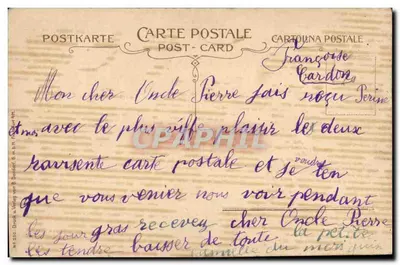 POSTKARTE CARTE POSTALE CARTOLINA POSTALE
POST-CARD
Françoise
Cardon
Mon cher Oncle Pierre jais roçu Perine
et moi avec le plus viffe plaisir les deux
ravisente carte postale et je ten
voudre
que vous venier nous voir pendant
les jour gras recevez cher Oncle Pierre
les tendre baisser de toute la petite
famille du